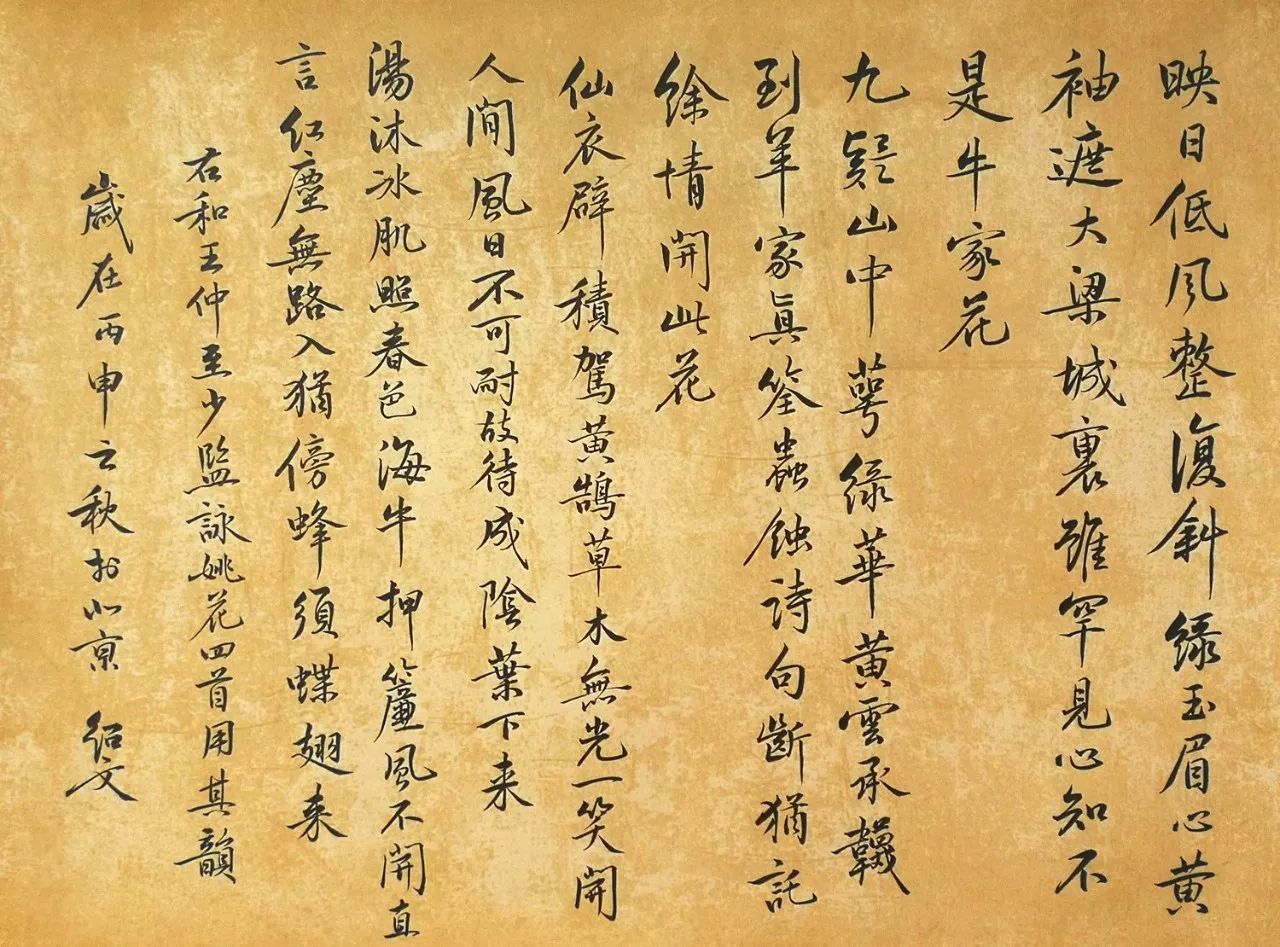 映日低风整復斜緑玉眉心黄
袖遮大梁城裏雖罕見心知不
是牛家花
九疑山中萼緑華黄雲承襪
到羊家真筌蟲蝕詩句斷猶託
徐情開此花
仙衣襞積駕黄鵠草木無光一笑開
人間風日不可耐故待成陰葉下来
湯沐冰肌照春色海牛押簾風不開直
言紅塵無路入猶傍蜂須蝶翅来
右和王仲至少監詠姚花四首用其韻
歲在丙申之秋於北京 紹文